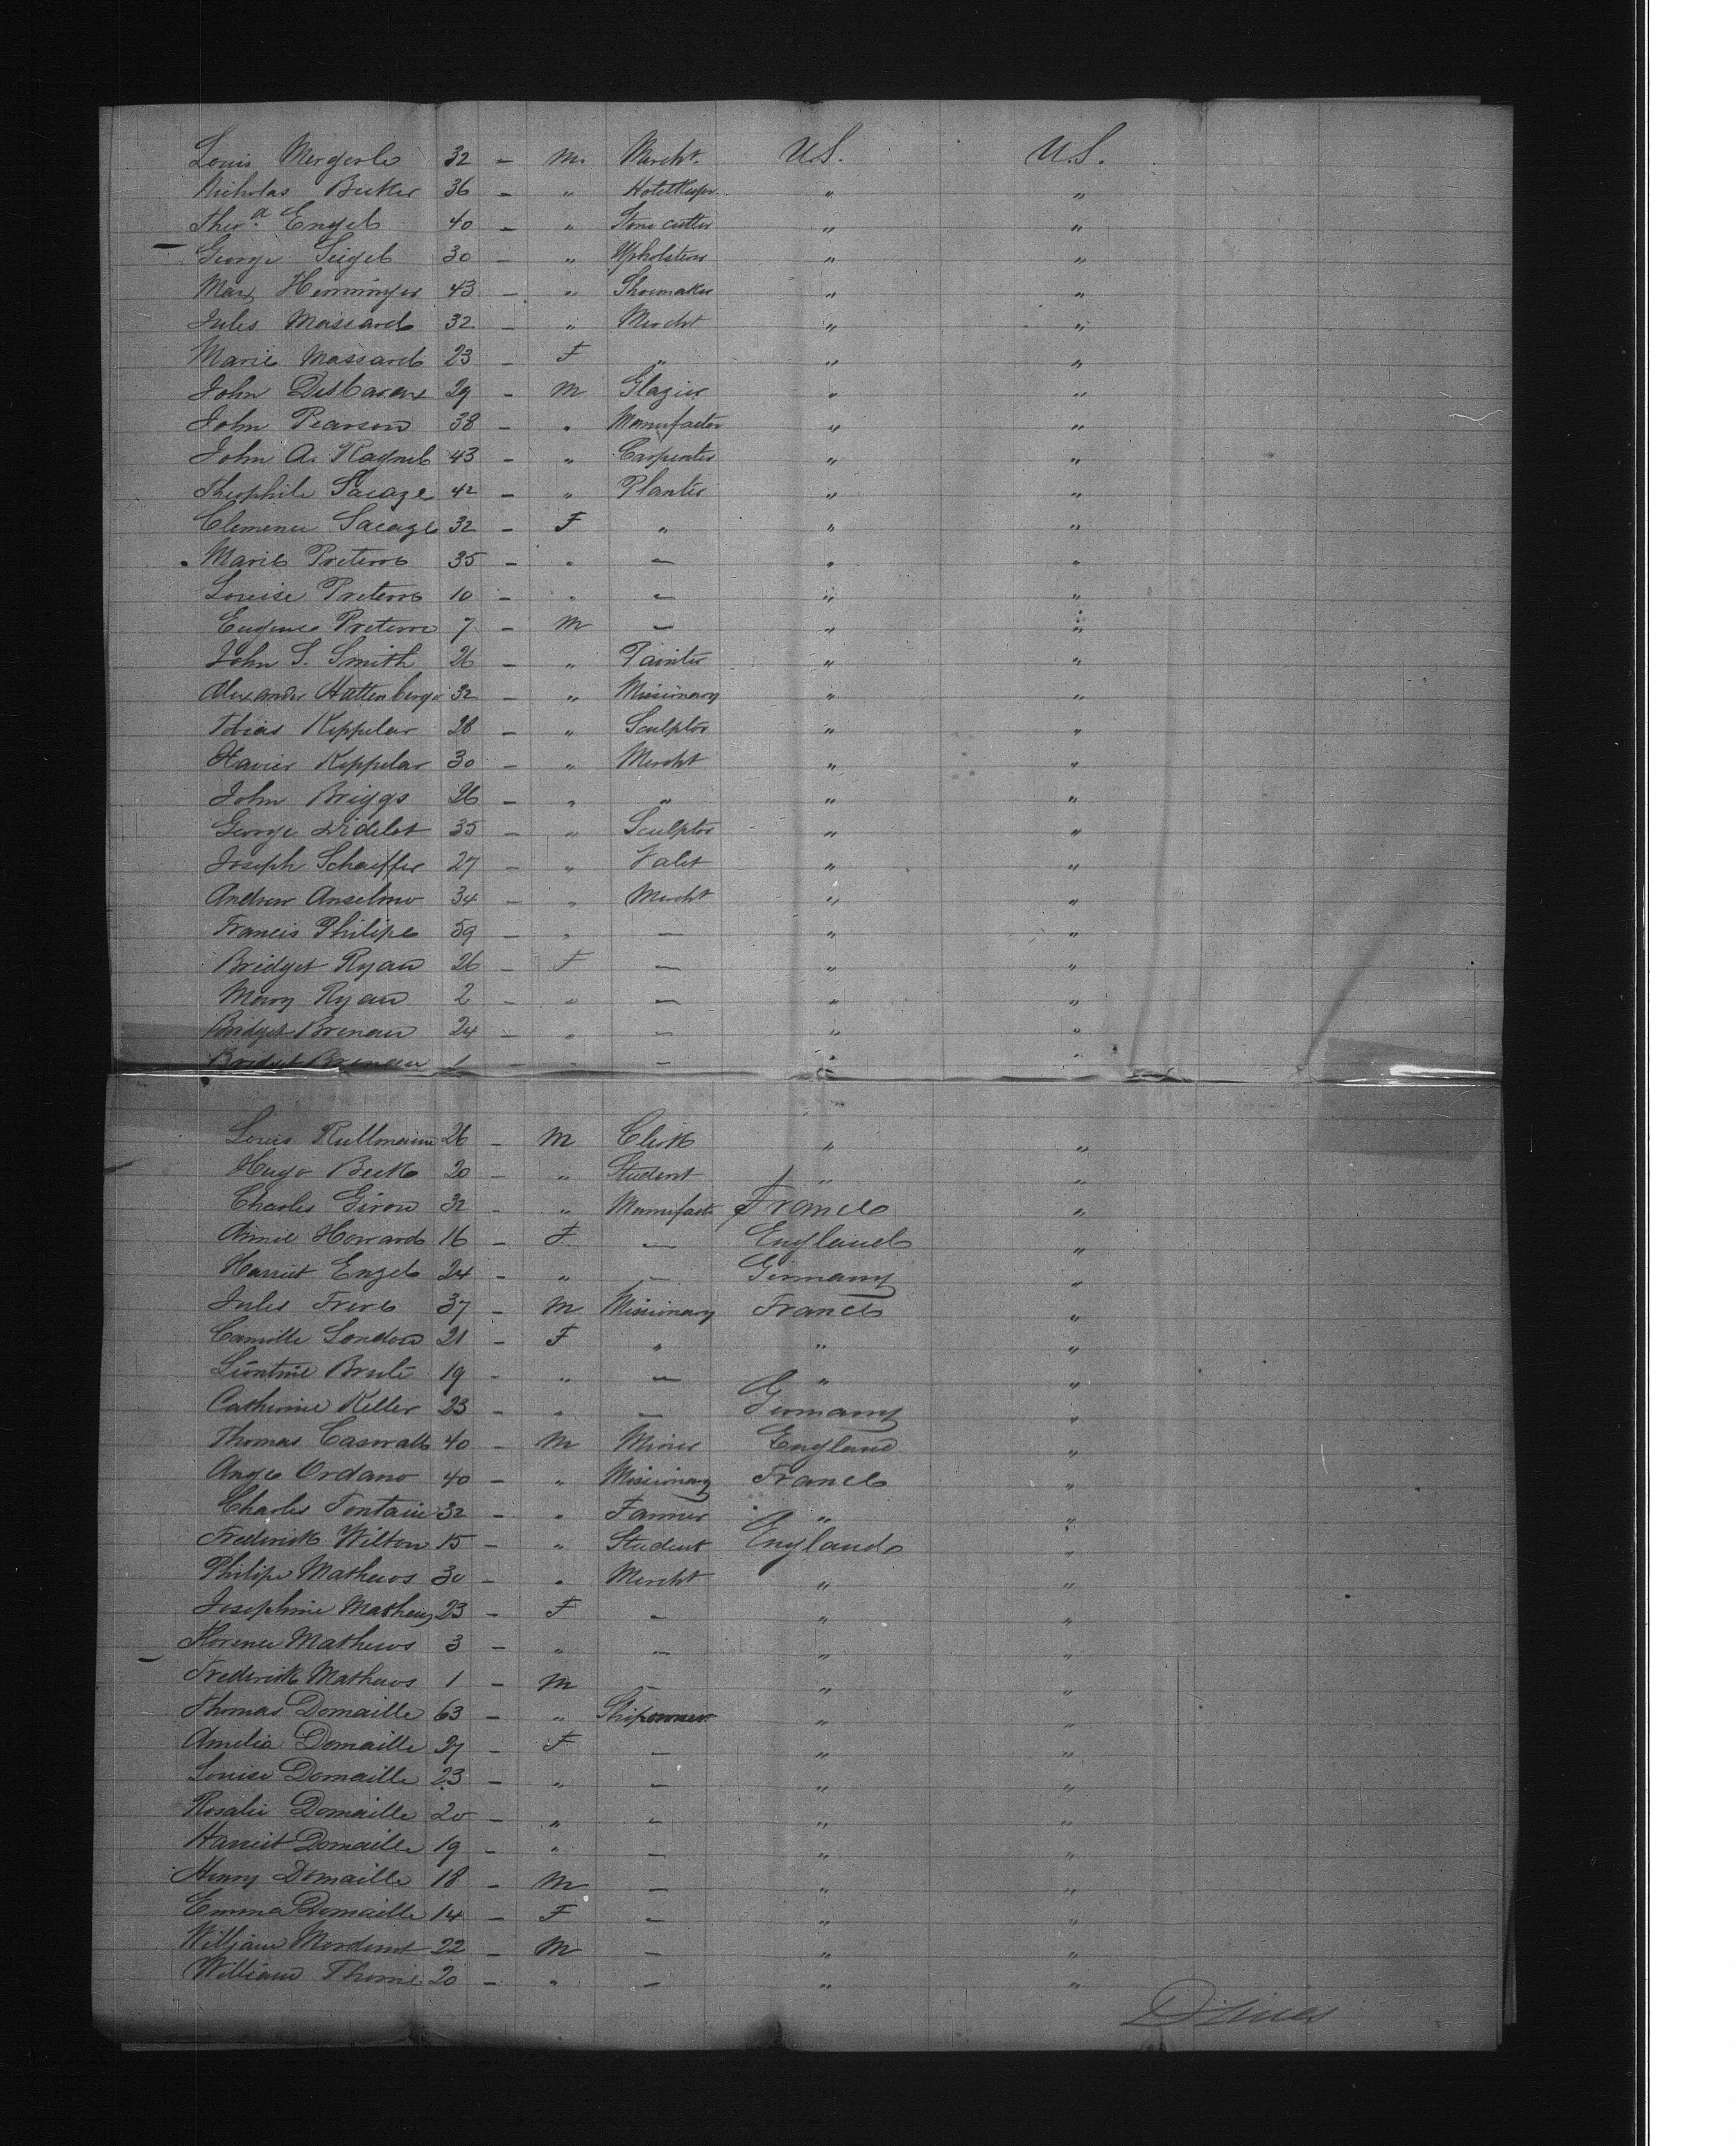 Louis Mergerle 32 - M. Mercht. U.S. U.S.
Nicholas Becker 36 - " Hotelkeepr " "
Theo.a Engel 40 - " Stone cutter " "
George Seigel 30 - " Upholsterer " "
Max Hemminger 43 - " Shoemaker " "
Jules Massard 32 - " Mercht " "
Marie Massard 23 - F " " "
John 29 - M Glazier " "
John Pearson 38 - " Manufacter " "
John A. Raynel 43 - " Carpenter " "
Theophile Sacaze 42 - " Planter " "
Clemence Sacaze 32 - F " " "
Marie Preterre 35 - " - " "
Louise Preterre 10 - " - " "
Eugene Preterre 7 - M - " "
John S. Smith 26 - " Painter " "
Alexander Hattenberger 32 - " Missionary " "
Tobias Keppelar 28 - " Sculptor " "
Xavier Keppelar 30 - " Mercht " "
John Briggs 26 - " " " "
George Didelot 35 - " Sculptor " "
Joseph Schaeffer 27 - " Valet " "
Andrew Anselmo 34 - " Mercht " "
Francis Philipe 59 - " - " "
Bridget Ryan 26 - F - " "
Mary Ryan 2 - " - " "
Bridget Brenan 24 - " - " "
Bridget Brenan 1 - " - " "
Louis Rullmann 26 - M Clerk " "
Hugo Beck 20 - " Student " "
Charles Giron 32 - " Manufactr France "
Annie Howard 16 - F. - England "
Harriet Engel 24 - " - Germany "
Jules Frere 37 - M Missionary France "
Camille London 21 - F " " "
Léontine Brulé 19 - " - " "
Catherine Keller 23 - " - Germany "
Thomas Caswall 40 - M Miner England "
Ange Ordano 40 - " Missionary France "
Charles Fontaine 32 - " Farmer " "
Frederick Wilton 15 - " Student England "
Philipe Mathews 30 - " Mercht " "
Josephine Mathews 23 - F - " "
Florence Mathews 3 - " - " "
Frederick Mathews 1 - M - " "
Thomas Domaille 63 - " Shipowner " "
Amelia Domaille 27 - F - " "
Louise Domaille 23 - " - " "
Rosalie Domaille 20 - " - " "
Harriet Domaille 19 - " - " "
Henry Domaille 18 - M - " "
Emma Domaille 14 - F - " "
William Mordent 22 - M - " "
William Thorne 20 - " - " "